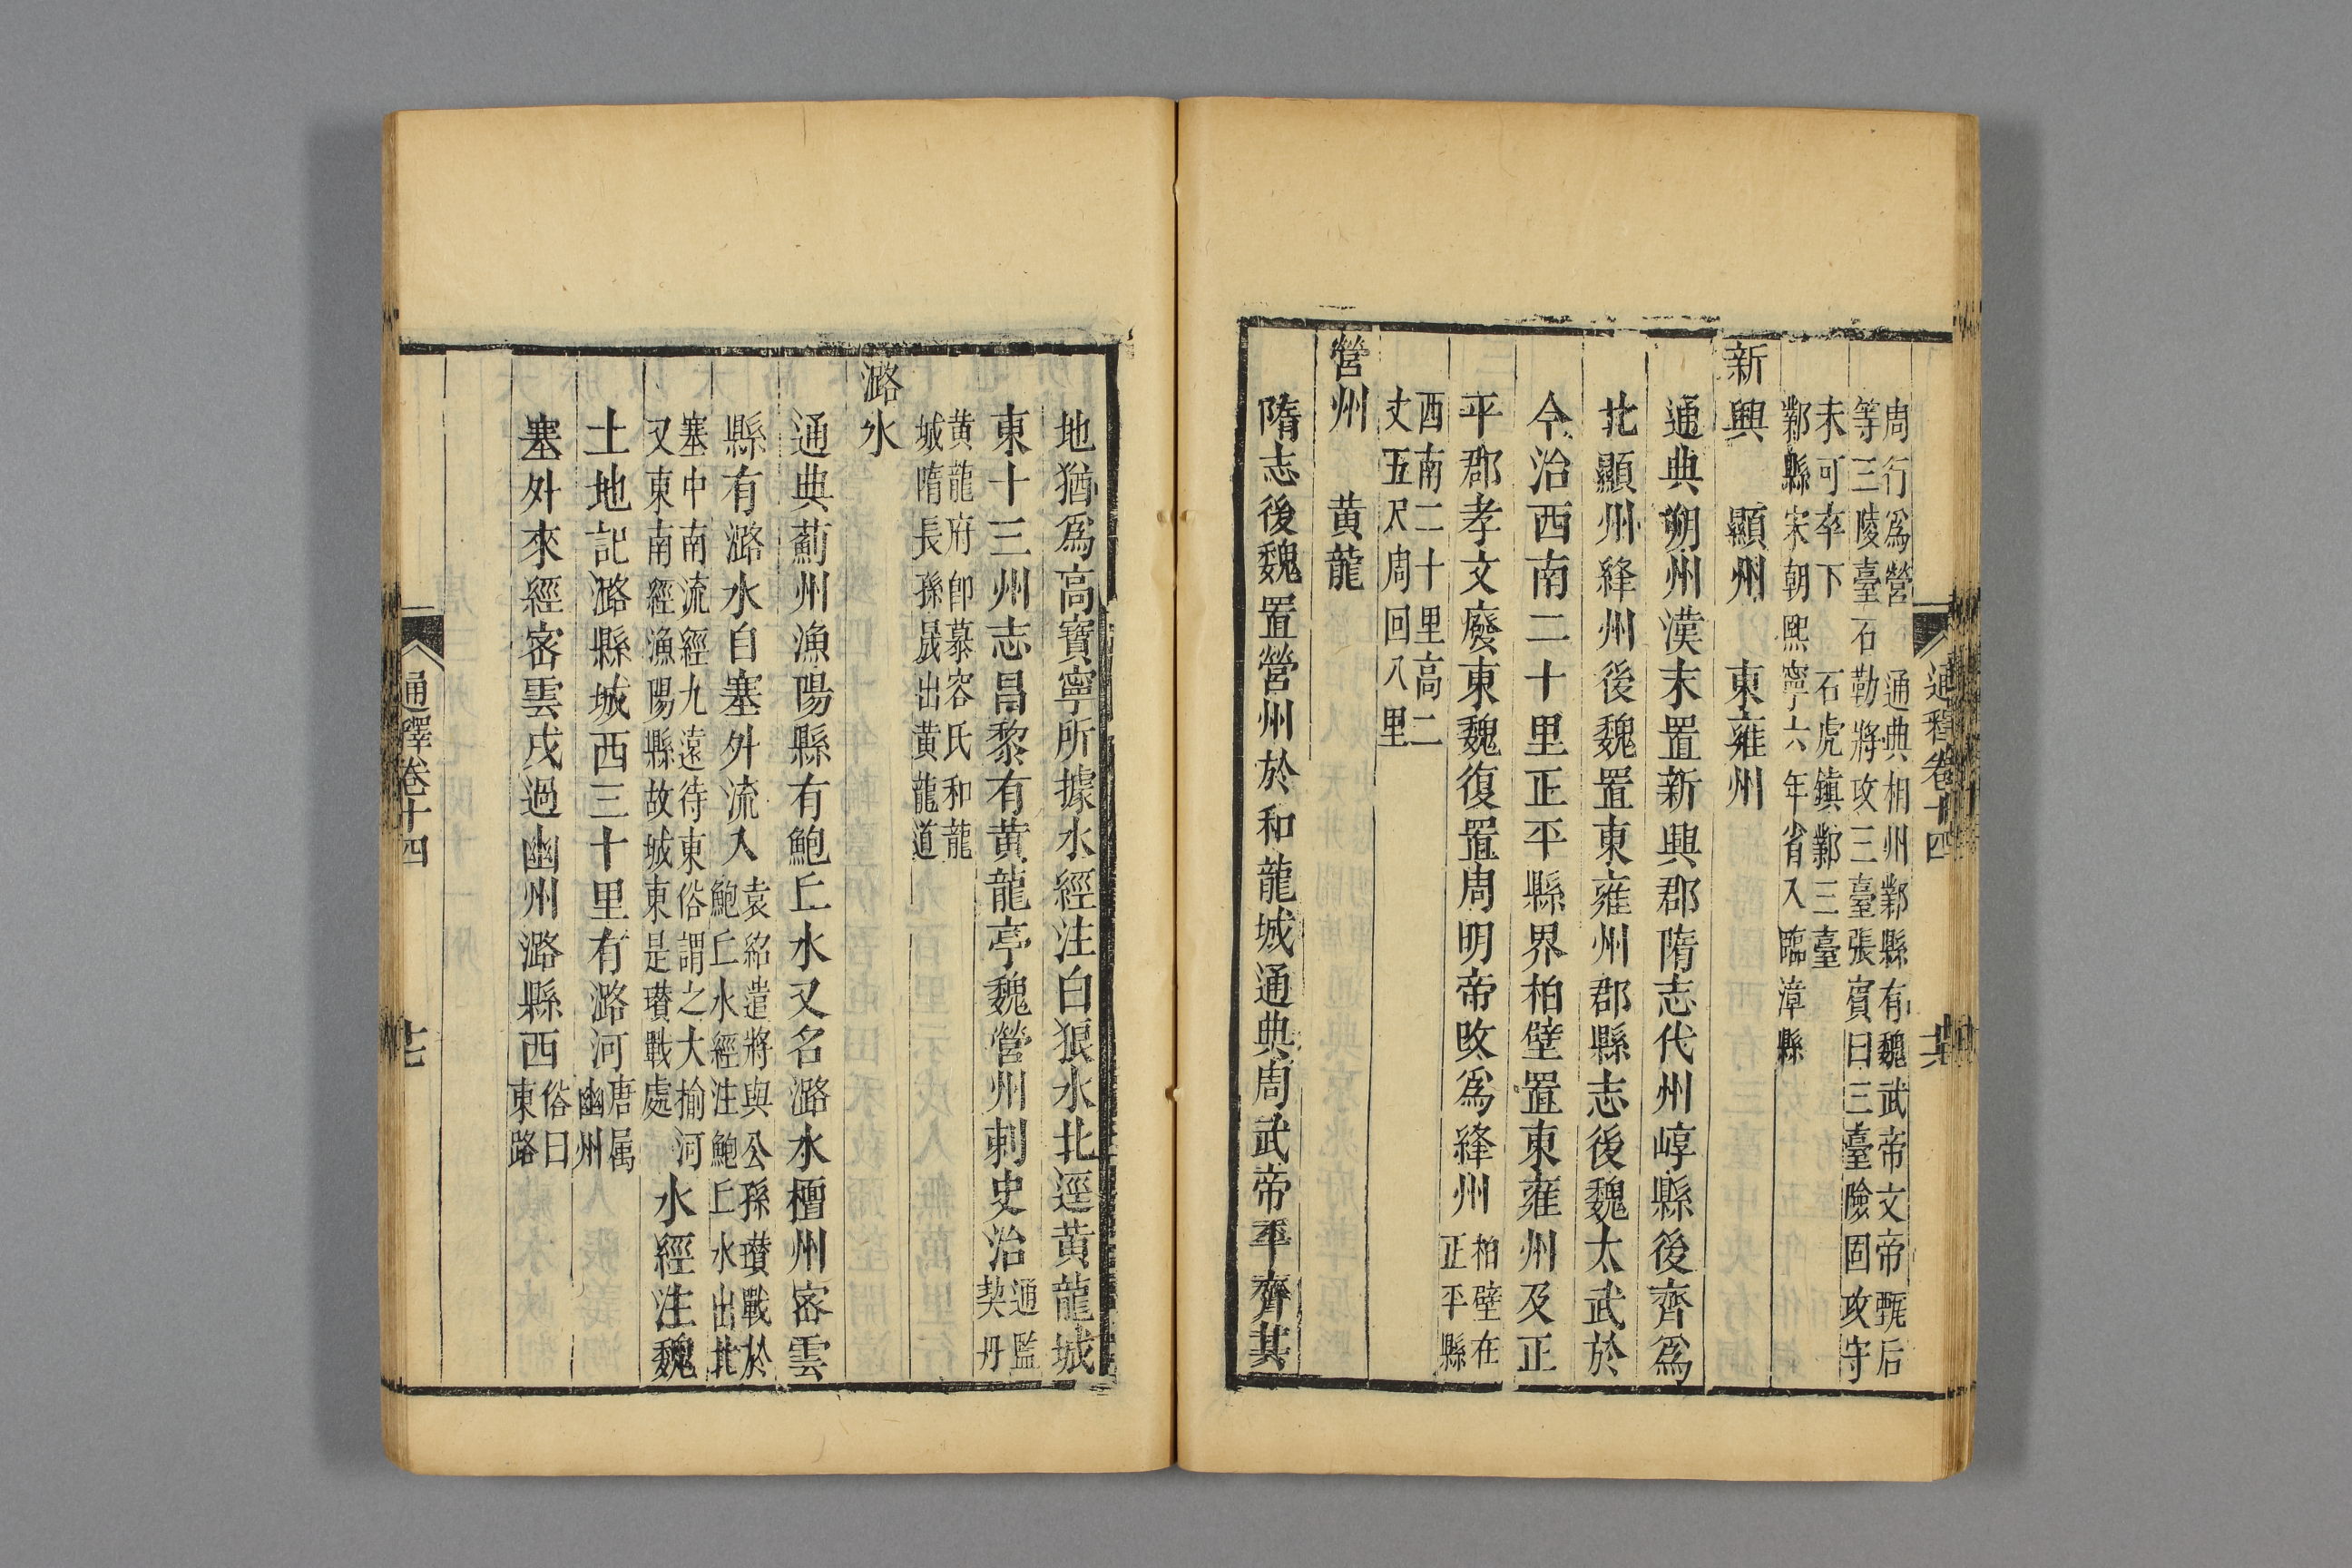 通釋卷十四
周行爲營　通典相州鄴縣有魏武帝文帝甄后
等三陵臺石勒將攻三臺張賓曰三臺險固攻守
未可卒下　石虎鎮鄴三臺
鄴縣宋朝熙寧六年省入臨漳縣
新興　顯州　東雍州
通典朔州漢末置新興郡隋志代州崞縣後齊爲
北顯州絳州後魏置東雍州郡縣志後魏太武於
今治西南二十里正平縣界柏壁置東雍州及正
平郡孝文廢東魏復置周明帝改爲絳州
柏壁在
正平縣
西南二十里高二
丈五尺周回八里
營州　黄龍
隋志後魏置營州於和龍城通典周武帝平齊其
地猶爲高寶寧所據水經注白狼水北逕黄龍城
東十三州志昌黎有黄龍亭魏營州刺史治
通監
契丹
黄龍府卽慕容氏和龍
城隋長孫晟出黄龍道
潞水
通典薊州漁陽縣有鮑丘水又名潞水檀州密雲
縣有潞水自塞外流入
袁紹遣將與公孫瓚戰於
鮑丘水經注鮑丘水出北
塞中南流經九遠待東俗謂之大揄河
又東南經漁陽縣故城東是瓚戰處
水經注魏
土地記潞縣城西三十里有潞河
唐属
幽州
塞外來經密雲戍過幽州潞縣西
俗曰
東路
通釋卷十四